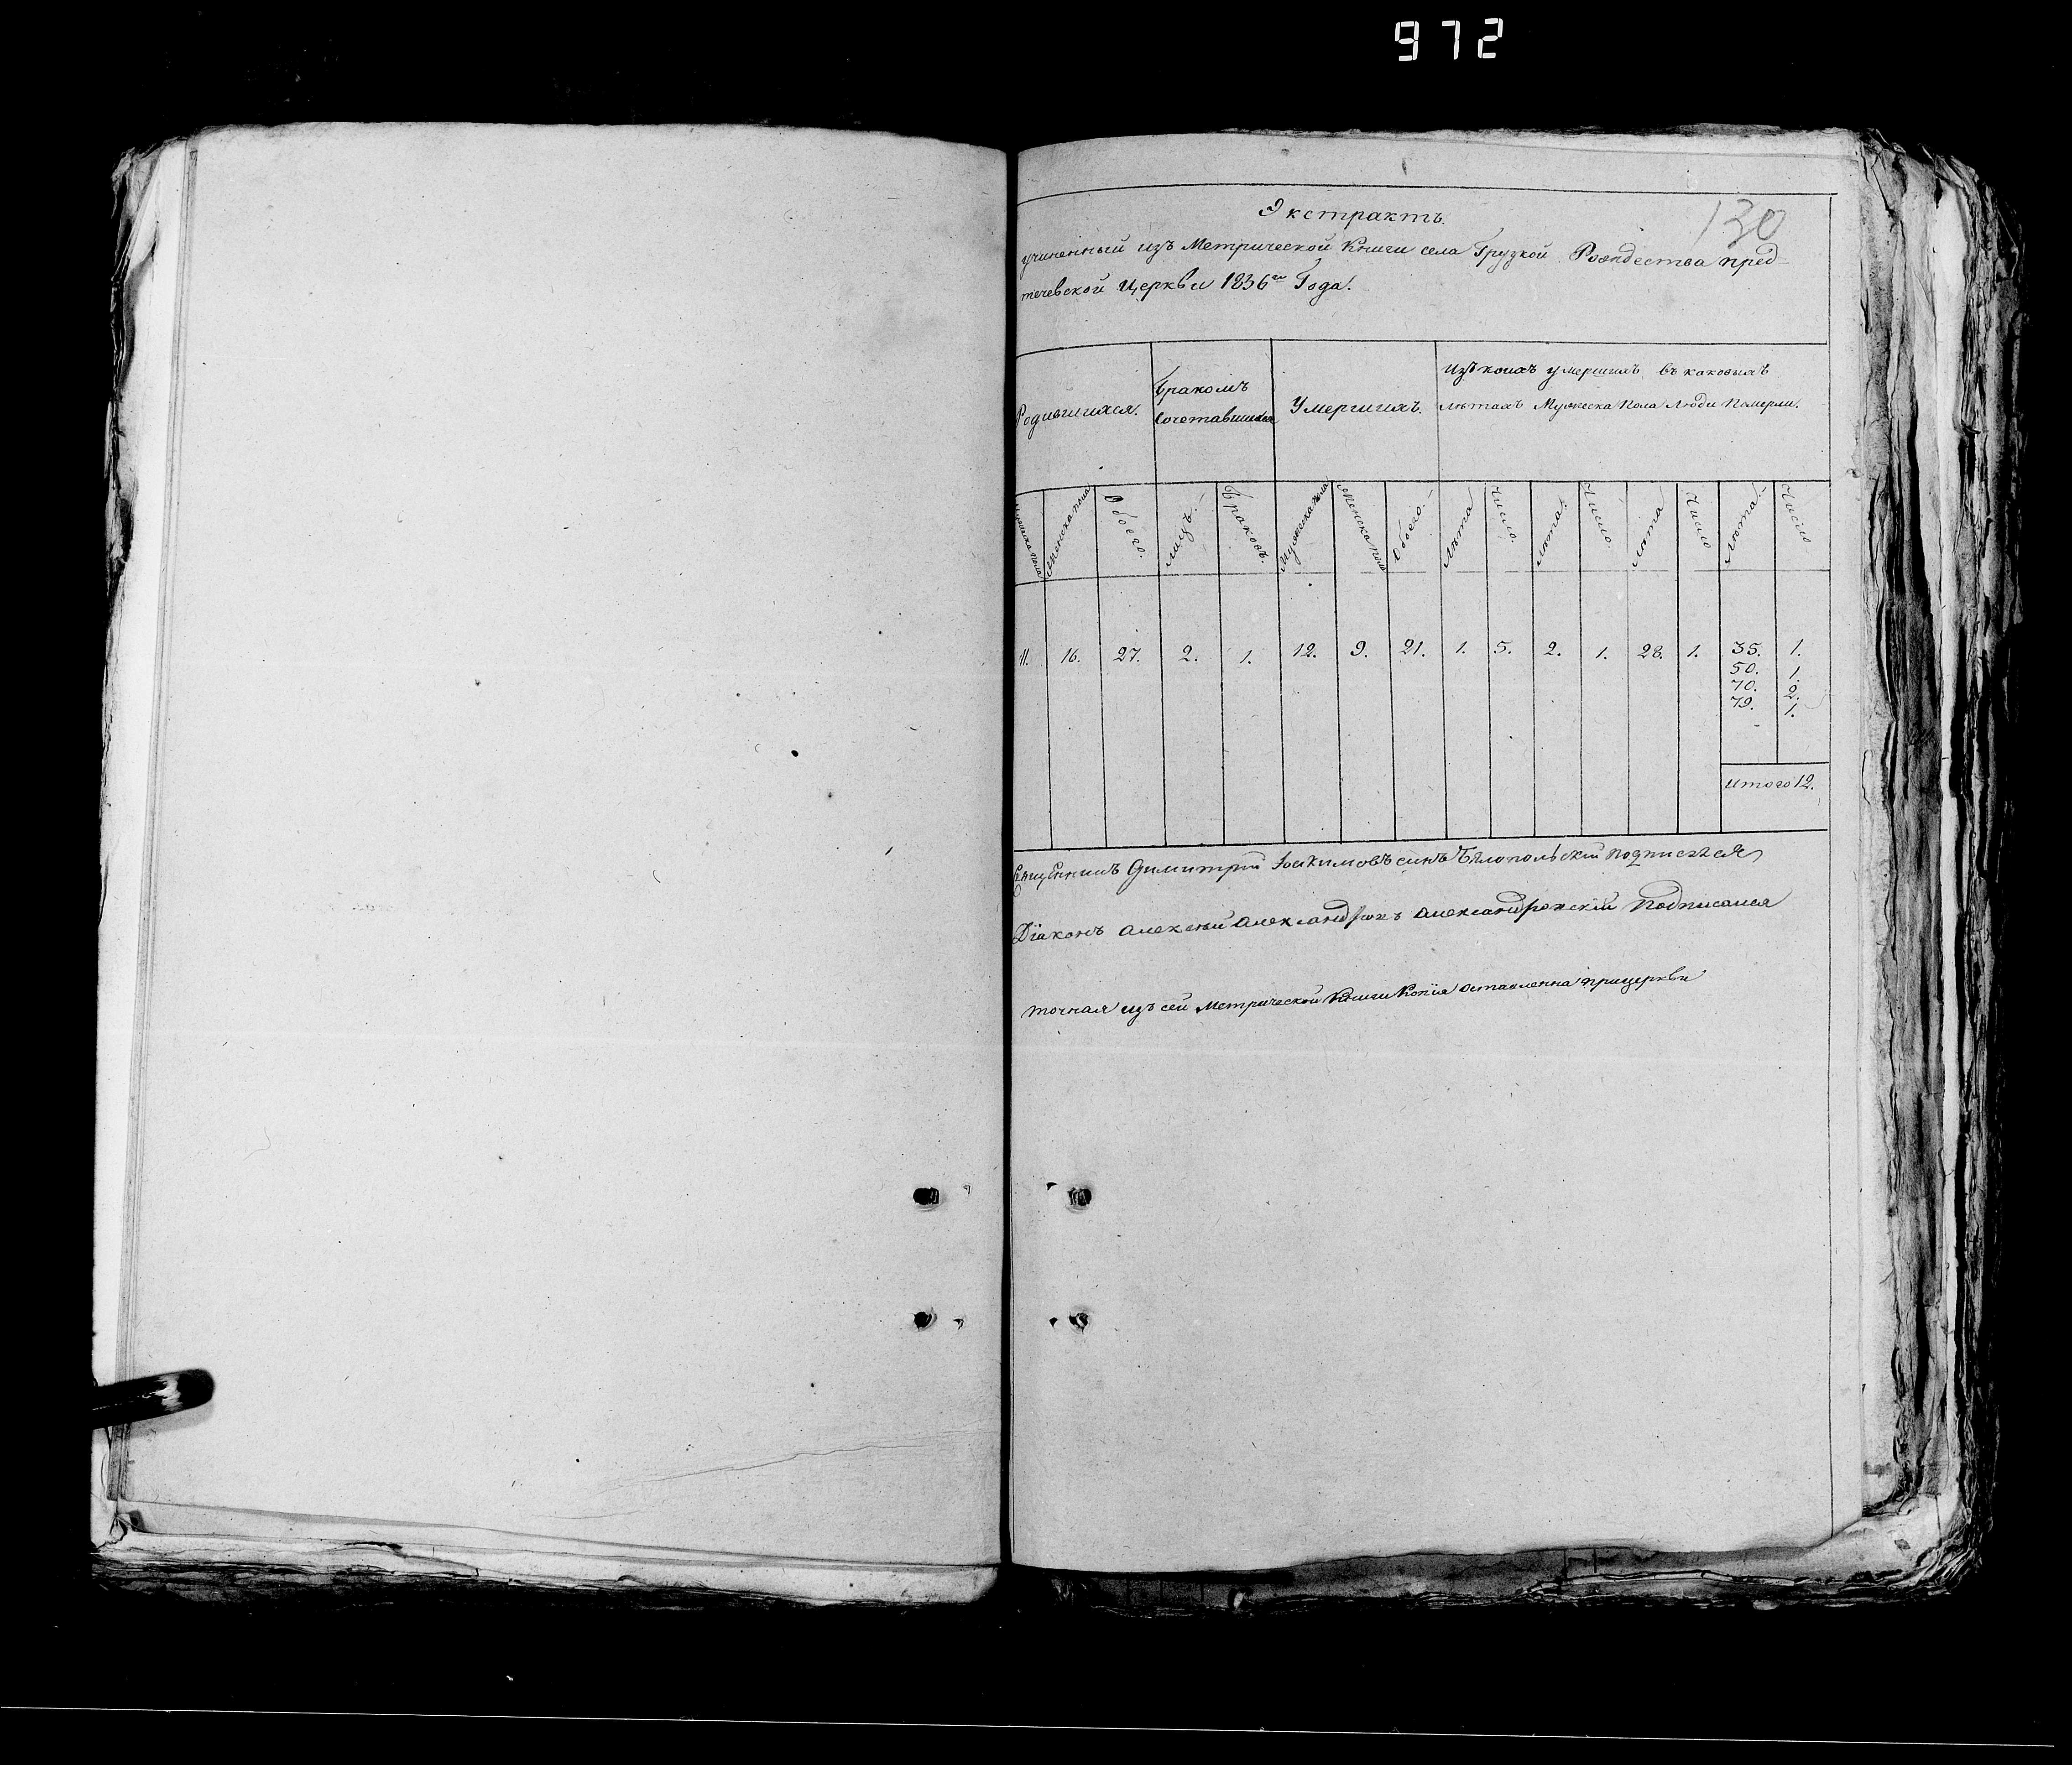 972
130
Экстрактъ.
учиненный изъ Метрической Книги села Грузкой Рождества пред-
течевской Церкви 1836го Года.
Родившихся.
Бракомъ
Сочетавшихся
Умершихъ.
Изъ коихъ умершихъ въ каковыхъ
лѣтахъ Мужеска Пола люди Померли.
Мужеска пола Женска пола Обоего. лицъ. Браковъ. Мужеска пола Женска пола Обоего. Лѣта Число. Лѣта. Число. Лѣта Число Лѣта. Число
11. 16. 27. 2. 1. 12. 9. 21. 1. 5. 2. 1. 28. 1. 35. 1.
50. 1.
70. 2.
79. 1.
Итого 12.
Священникъ Димитрій Іоакимовъ синъ Бѣлопольскій подписался
Діаконъ Алексѣй Александровъ Александровскій Подписался
точная изъ сей Метрической Книги Копія Оставленна прицеркви